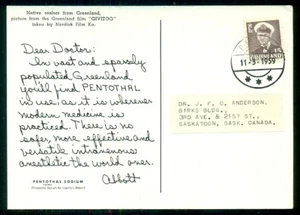 Native sealers from Greenland,
picture from the Greenland film "QIVITOQ"
taken by Nordisk Film Ko.
Dear Doctor:
In vast and sparsely
populated Greenland
you'll find PENTOTHAL
in use, as it is wherever
modern medicine is
practiced. There is no
safer, more effective and
versatile intravenous
anesthetic the world over.
Abbott
PENTOTHAL SODIUM
GRØNLAND
11-3-1959
DR. J. F. C. ANDERSON,
BIRKS BLDG.,
3RD AVE, & 21ST ST.,
SASKATOON, SASK, CANADA.